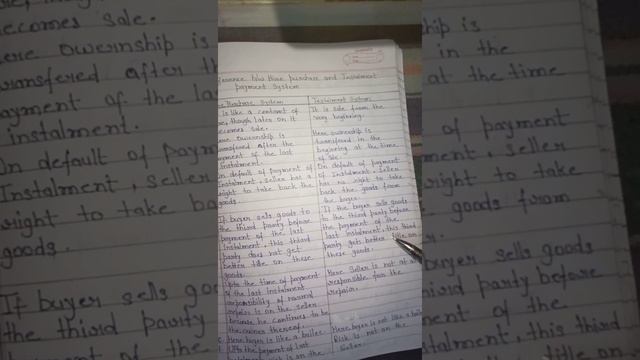 ference b/w Hire purchase and Instalment
payment System
Purchase System
is like a contract of
though later on it
becomes sale.
ownership is
transfered after the
payment of the last
instalment.
On default of payment of
Instalment, seller has a
right to take back the
goods
If buyer sells goods to
the third party before
payment of the last
Instalment, this third
party does not get
better title on these
goods.
Upto the time of payment
of the last Instalment
responsibility of normal
repairs is on the seller
because he continues to be
the owner thereof.
Here buyer is like a bailee.
Upto the payment of last
Instalment System
It is sale from the
very beginning.
Here ownership is
transfered in the
beginning at the time
of Sale.
On default of payment
of Instalment, Seller
has no right to take
back the goods from
the buyer.
If the buyer sells goods
to the third party before
the payment of the
last instalment, this third
party gets better title on
these goods.
Here Seller is not at all
responsible for the
repairs.
Here buyer is not like a
Risk is not on the
Seller.
becomes sale.
ownership is
transfered after th
payment of the la
instalment.
On default of paym
Instalment, seller
right to take ba
goods
If buyer sells goo
the third party
in the
at the time
of payment
, Seller
to take
goods from
sells goods
third party before
of the
instalment, this third